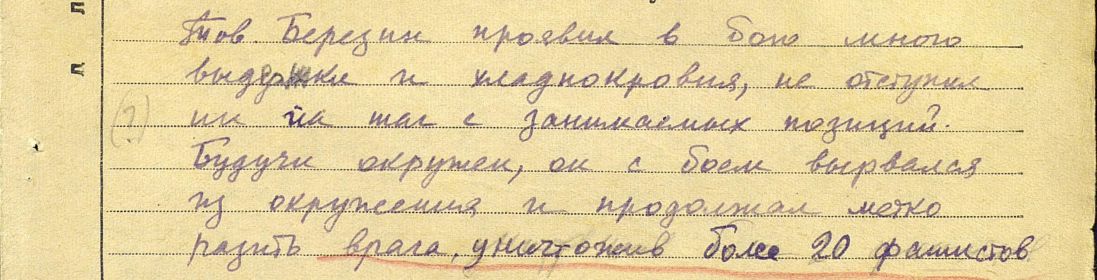 Тов. Березин проявил в бою много
выдержки и хладнокровия, не отступил
ни на шаг с занимаемых позиций.
(?) Будучи окружен, он с боем вырвался
из окружения и продолжал метко
разить врага, уничтожив более 20 фашистов